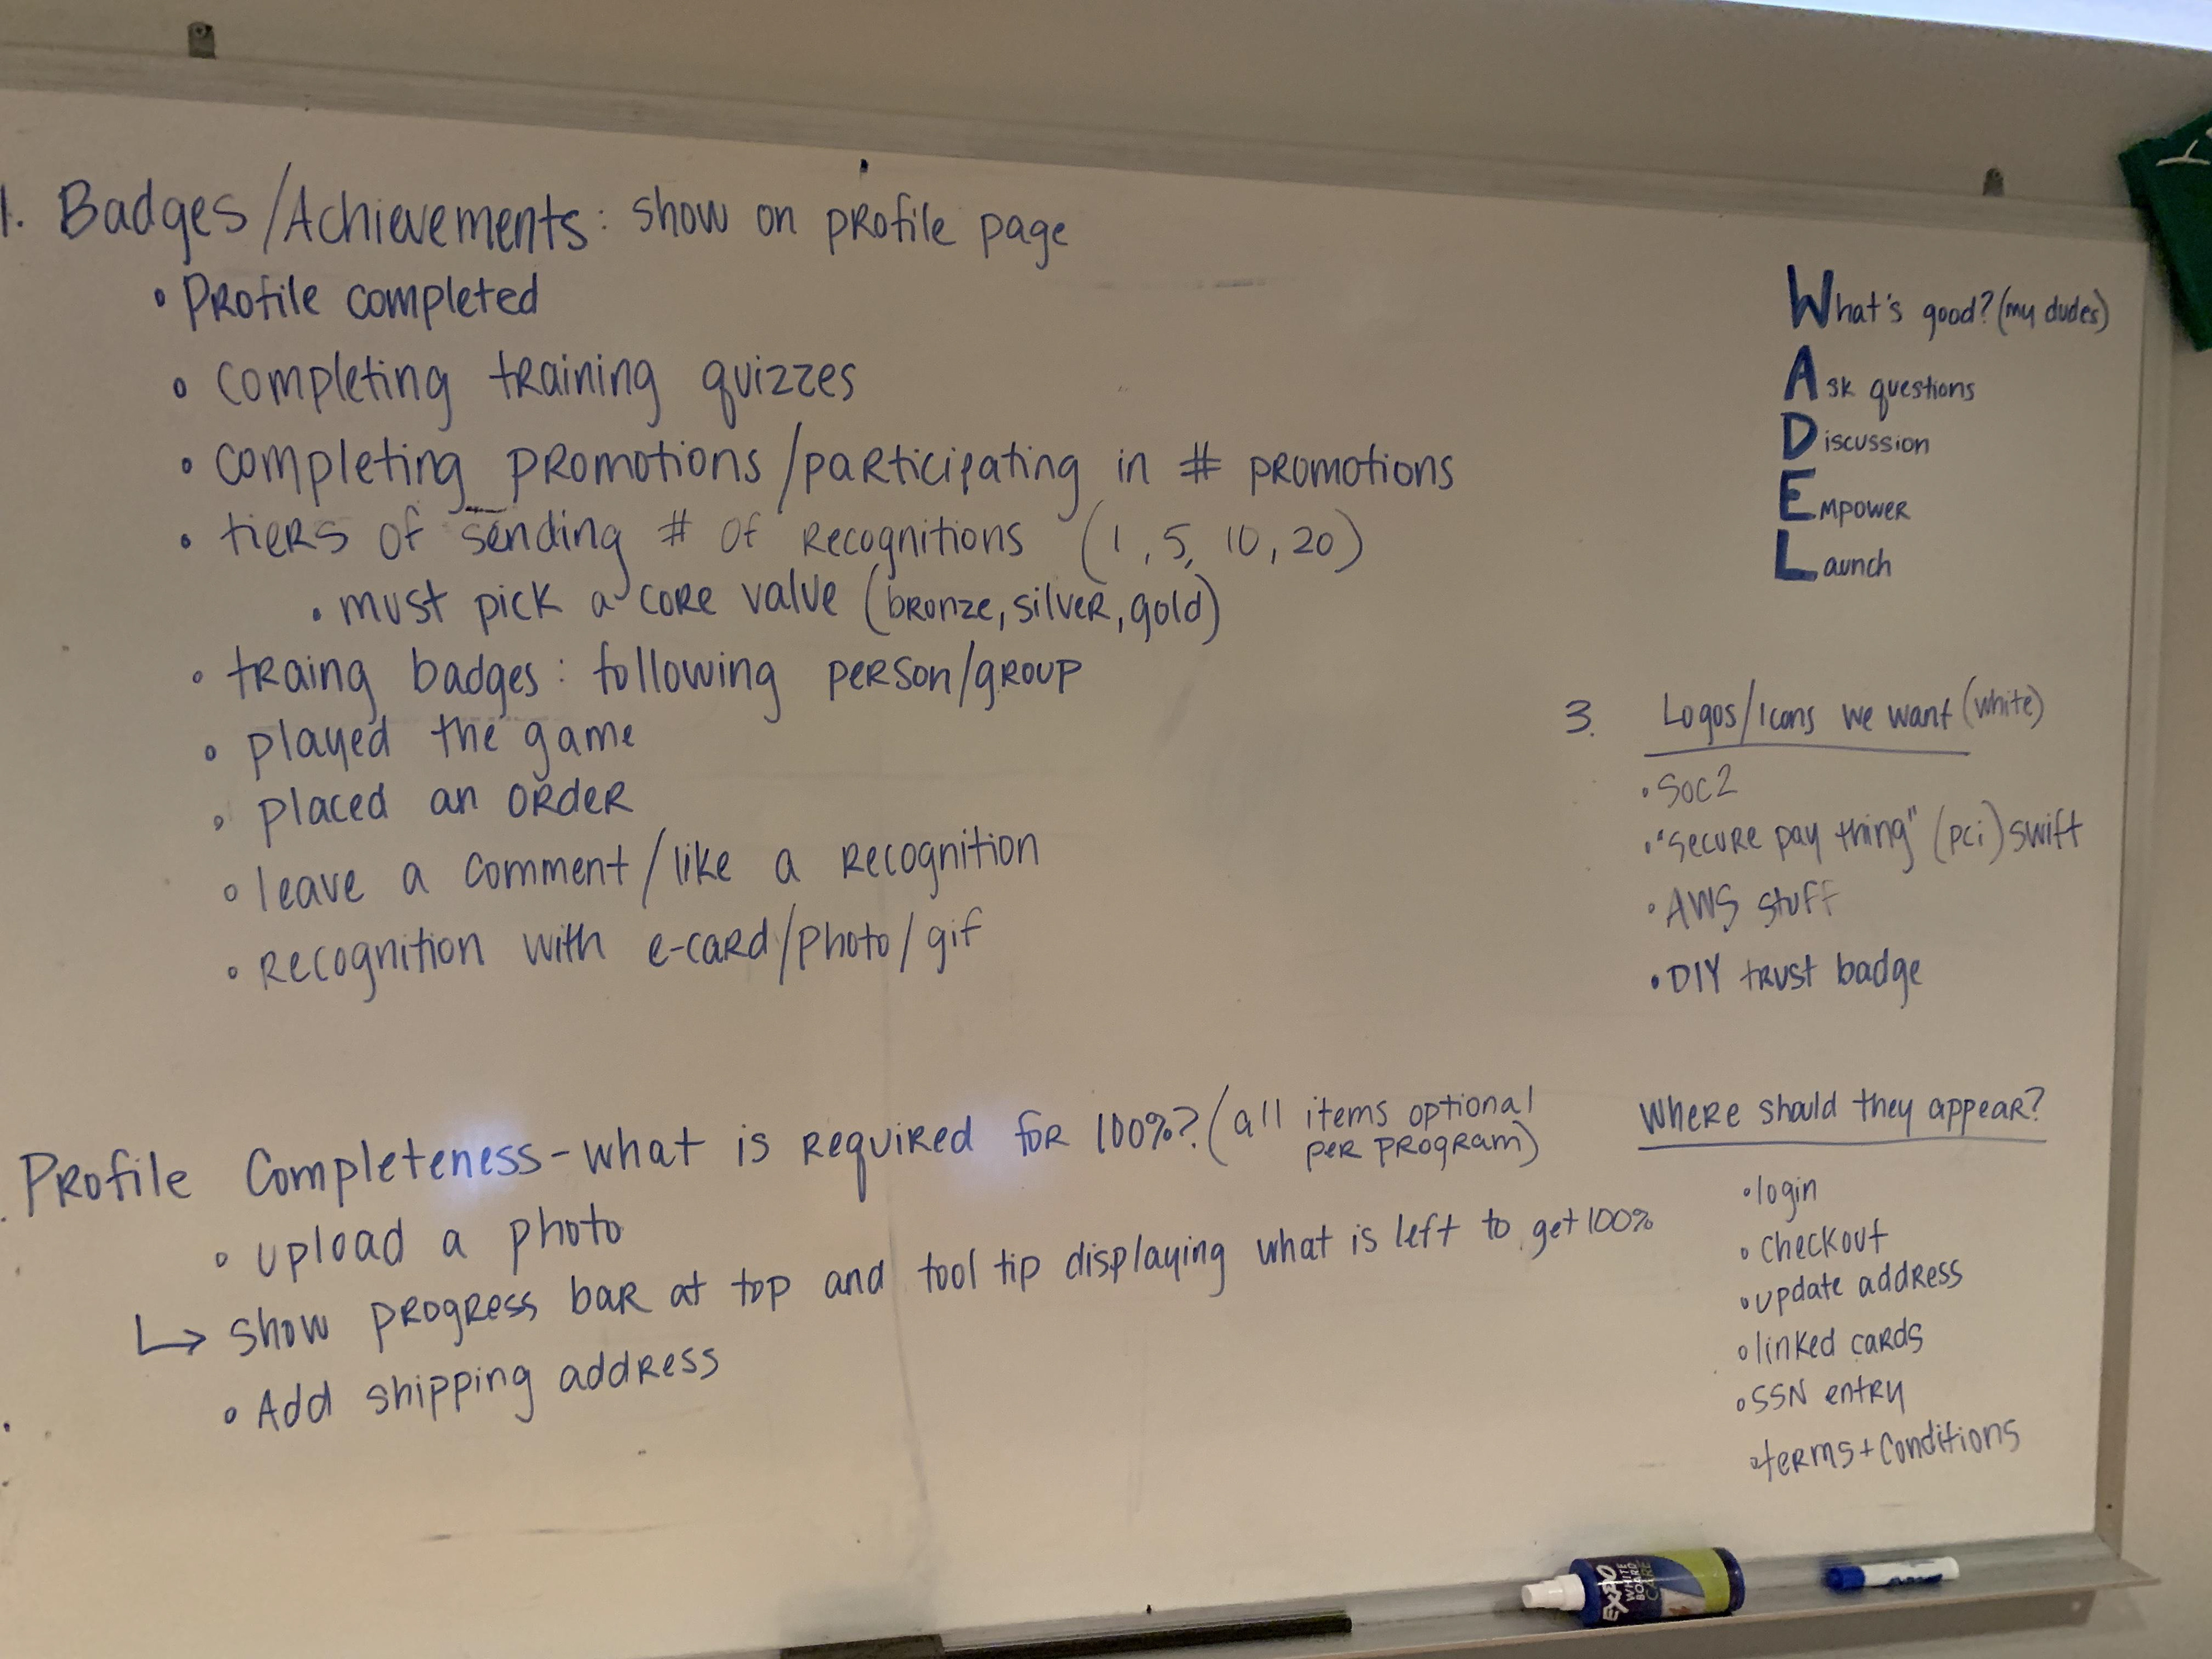 1. Badges/Achievements: show on profile page
• Profile completed
• completing training quizzes
• completing promotions/participating in # promotions
• tiers of sending # of recognitions (1, 5, 10, 20)
• must pick a core value (bronze, silver, gold)
• traing badges: following person/group
• played the game
• placed an order
• leave a comment/like a recognition
• recognition with e-card/photo/gif
Profile Completeness - what is required for 100%? (all items optional
per program)
• upload a photo
↳ show progress bar at top and tool tip displaying what is left to get 100%
• Add shipping address
What's good? (my dudes)
Ask questions
Discussion
Empower
Launch
3. Logos/Icons we want (white)
• Soc2
• "secure pay thing" (pci) swift
• AWS stuff
• DIY trust badge
Where should they appear?
• login
• checkout
• update address
• linked cards
• SSN entry
• terms + conditions
EXPO
WHITE
BOARD
CARE